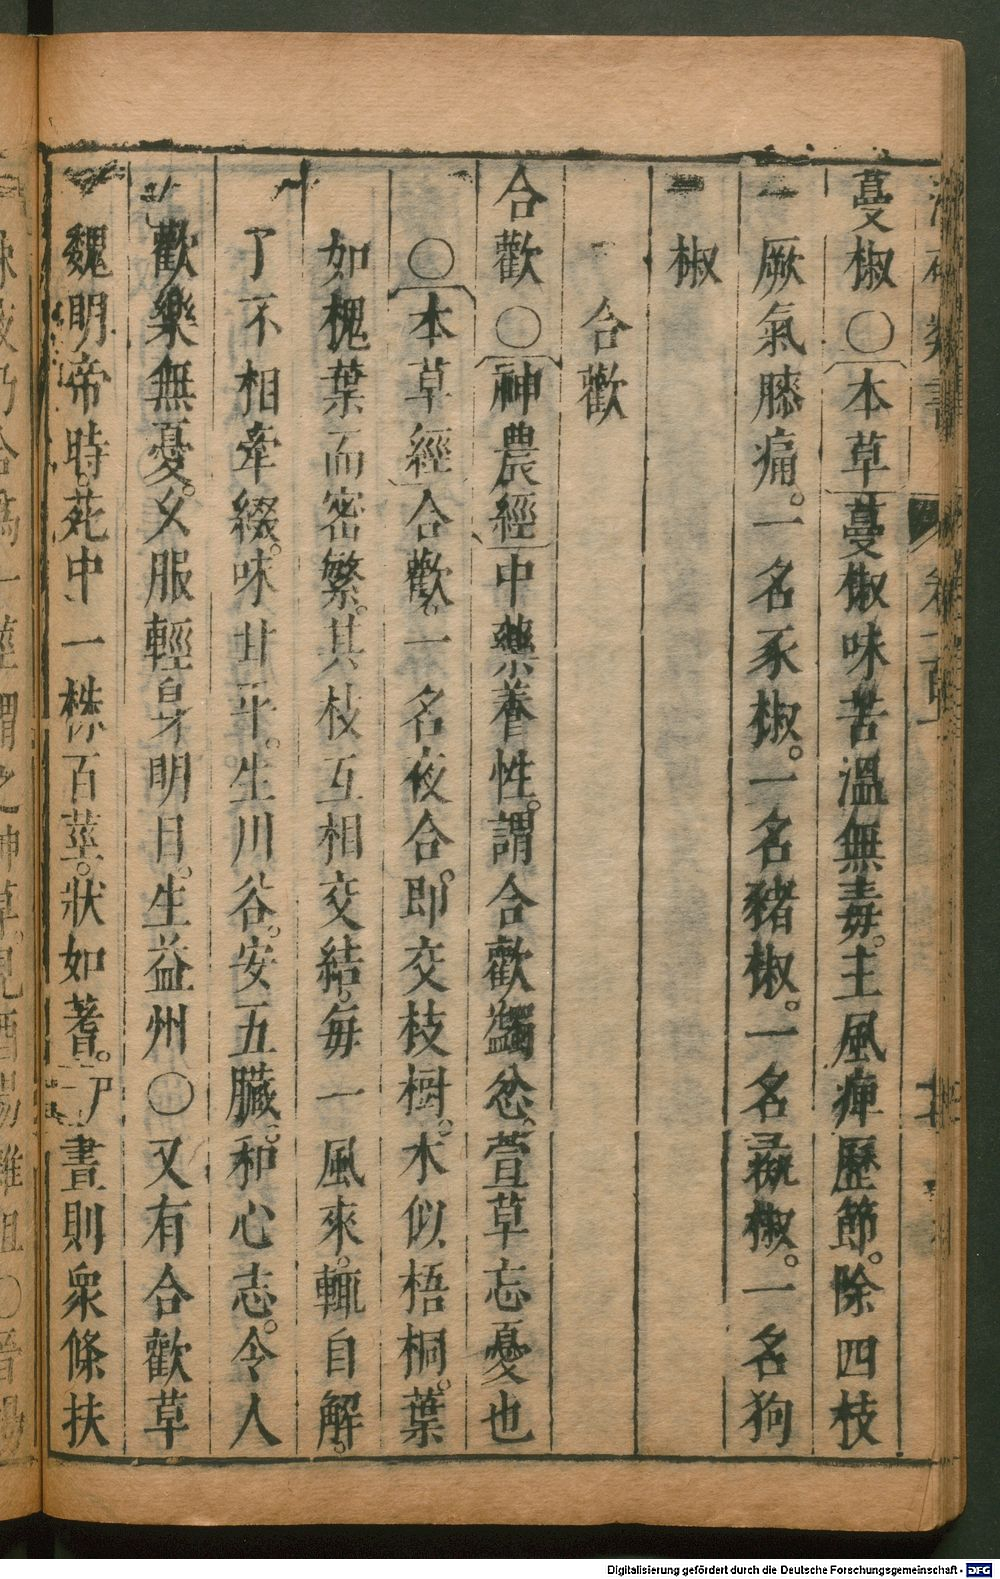 蔓椒〇本草蔓椒味苦溫無毒。主風痺歷節。除四枝
厥氣膝痛。一名豕椒。一名豬椒。一名彘椒。一名狗
椒
合歡
合歡〇神農經中藥養性。謂合歡蠲忿、萱草忘憂也
〇本草經合歡。一名夜合。即交枝樹。木似梧桐。葉
如槐葉而密繁。其枝互相交結。每一風來。輒自解。
了不相牽綴。味甘平。生川谷。安五臟。和心志。令人
歡樂無憂。久服輕身明目。生益州〇又有合歡草
魏明帝時。苑中一株百莖。狀如蓍。晝則衆條扶
Digitalisierung gefördert durch die Deutsche Forschungsgemeinschaft - DFG